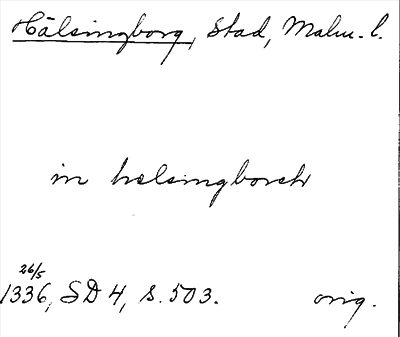 Hälsingborg, Stad, Malm. l.
in helsingborch
26/5
1336, SD 4, s. 503. orig.